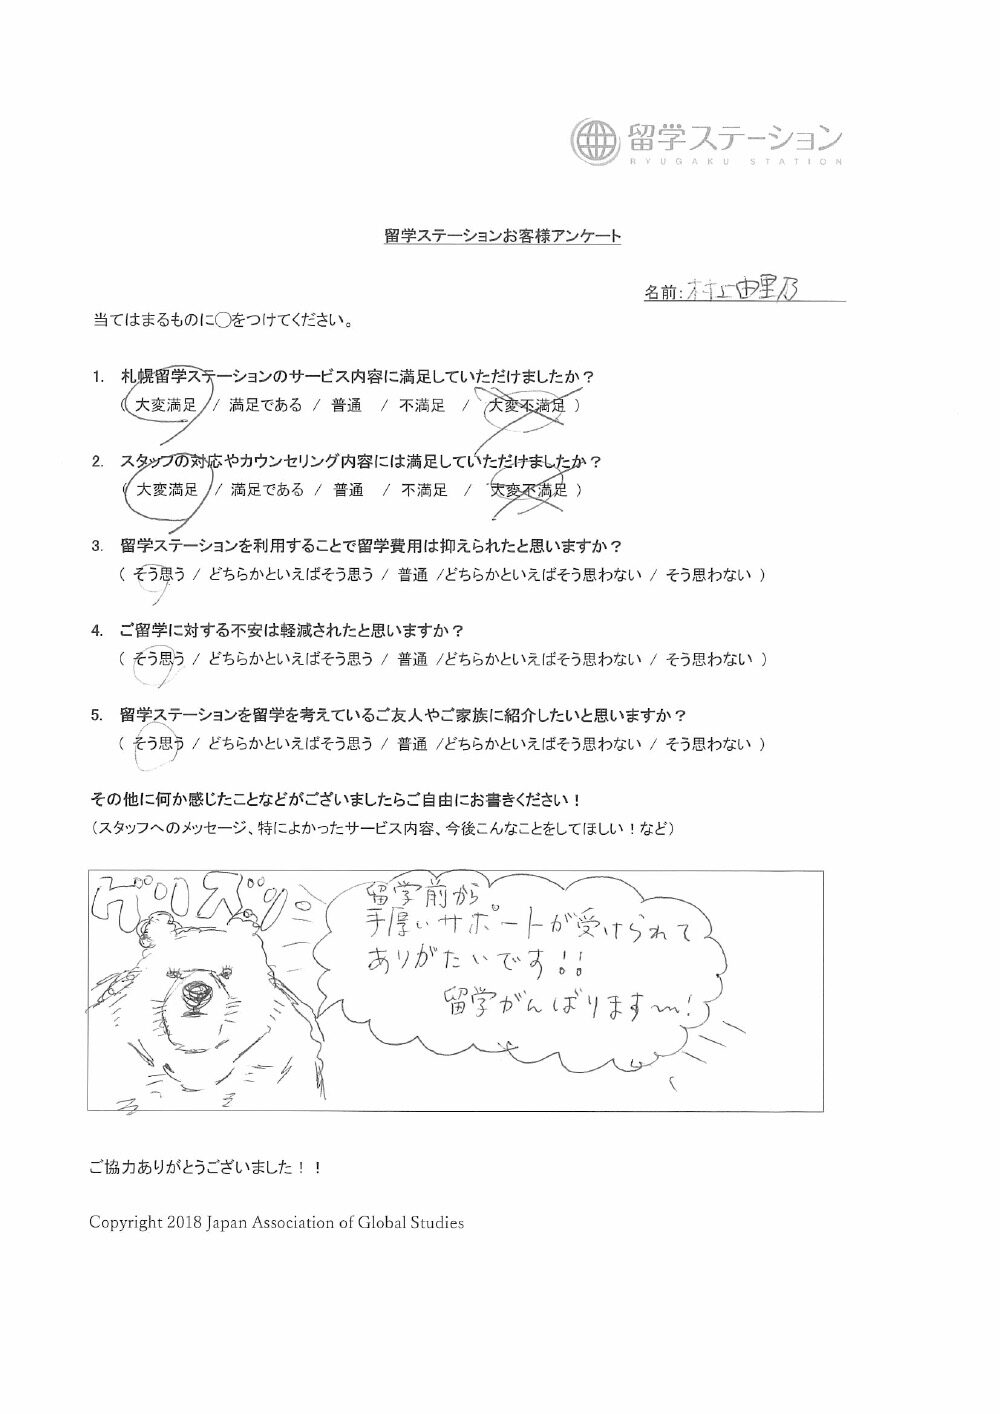 留学ステーション
RYUGAKU STATION
留学ステーションお客様アンケート
名前: 村上由里乃
当てはまるものに○をつけてください。
1. 札幌留学ステーションのサービス内容に満足していただけましたか？
( 大変満足 / 満足である / 普通 / 不満足 / 大変不満足 )
2. スタッフの対応やカウンセリング内容には満足していただけましたか？
( 大変満足 / 満足である / 普通 / 不満足 / 大変不満足 )
3. 留学ステーションを利用することで留学費用は抑えられたと思いますか？
( そう思う / どちらかといえばそう思う / 普通 /どちらかといえばそう思わない / そう思わない )
4. ご留学に対する不安は軽減されたと思いますか？
( そう思う / どちらかといえばそう思う / 普通 /どちらかといえばそう思わない / そう思わない )
5. 留学ステーションを留学を考えているご友人やご家族に紹介したいと思いますか？
( そう思う / どちらかといえばそう思う / 普通 /どちらかといえばそう思わない / そう思わない )
その他に何か感じたことなどがございましたらご自由にお書きください！
（スタッフへのメッセージ、特によかったサービス内容、今後こんなことをしてほしい！など）
留学前から
手厚いサポートが受けられて
ありがたいです!!
留学がんばります〜!
ご協力ありがとうございました！！
Copyright 2018 Japan Association of Global Studies